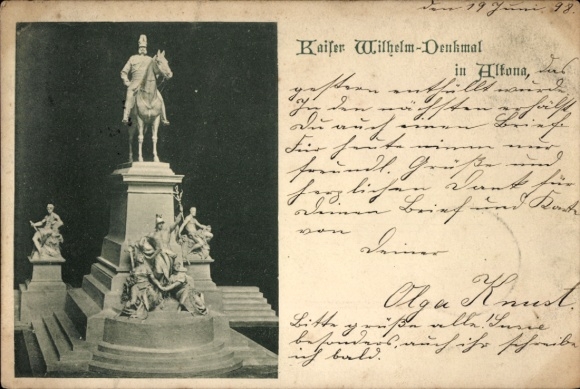 den 19 Juni 98.
Kaiser Wilhelm-Denkmal
in Altona, das
gestern enthüllt wurde
In den nächsten erhälst
Du auch einen Brief.
Für heute nimm nur
freundl. Grüße und
herzlichen Dank für
Deinen Brief und Karte
von
Deiner
Olga Knust.
Bitte grüße alle!
besonders, auch ihr schreibe
ich bald.